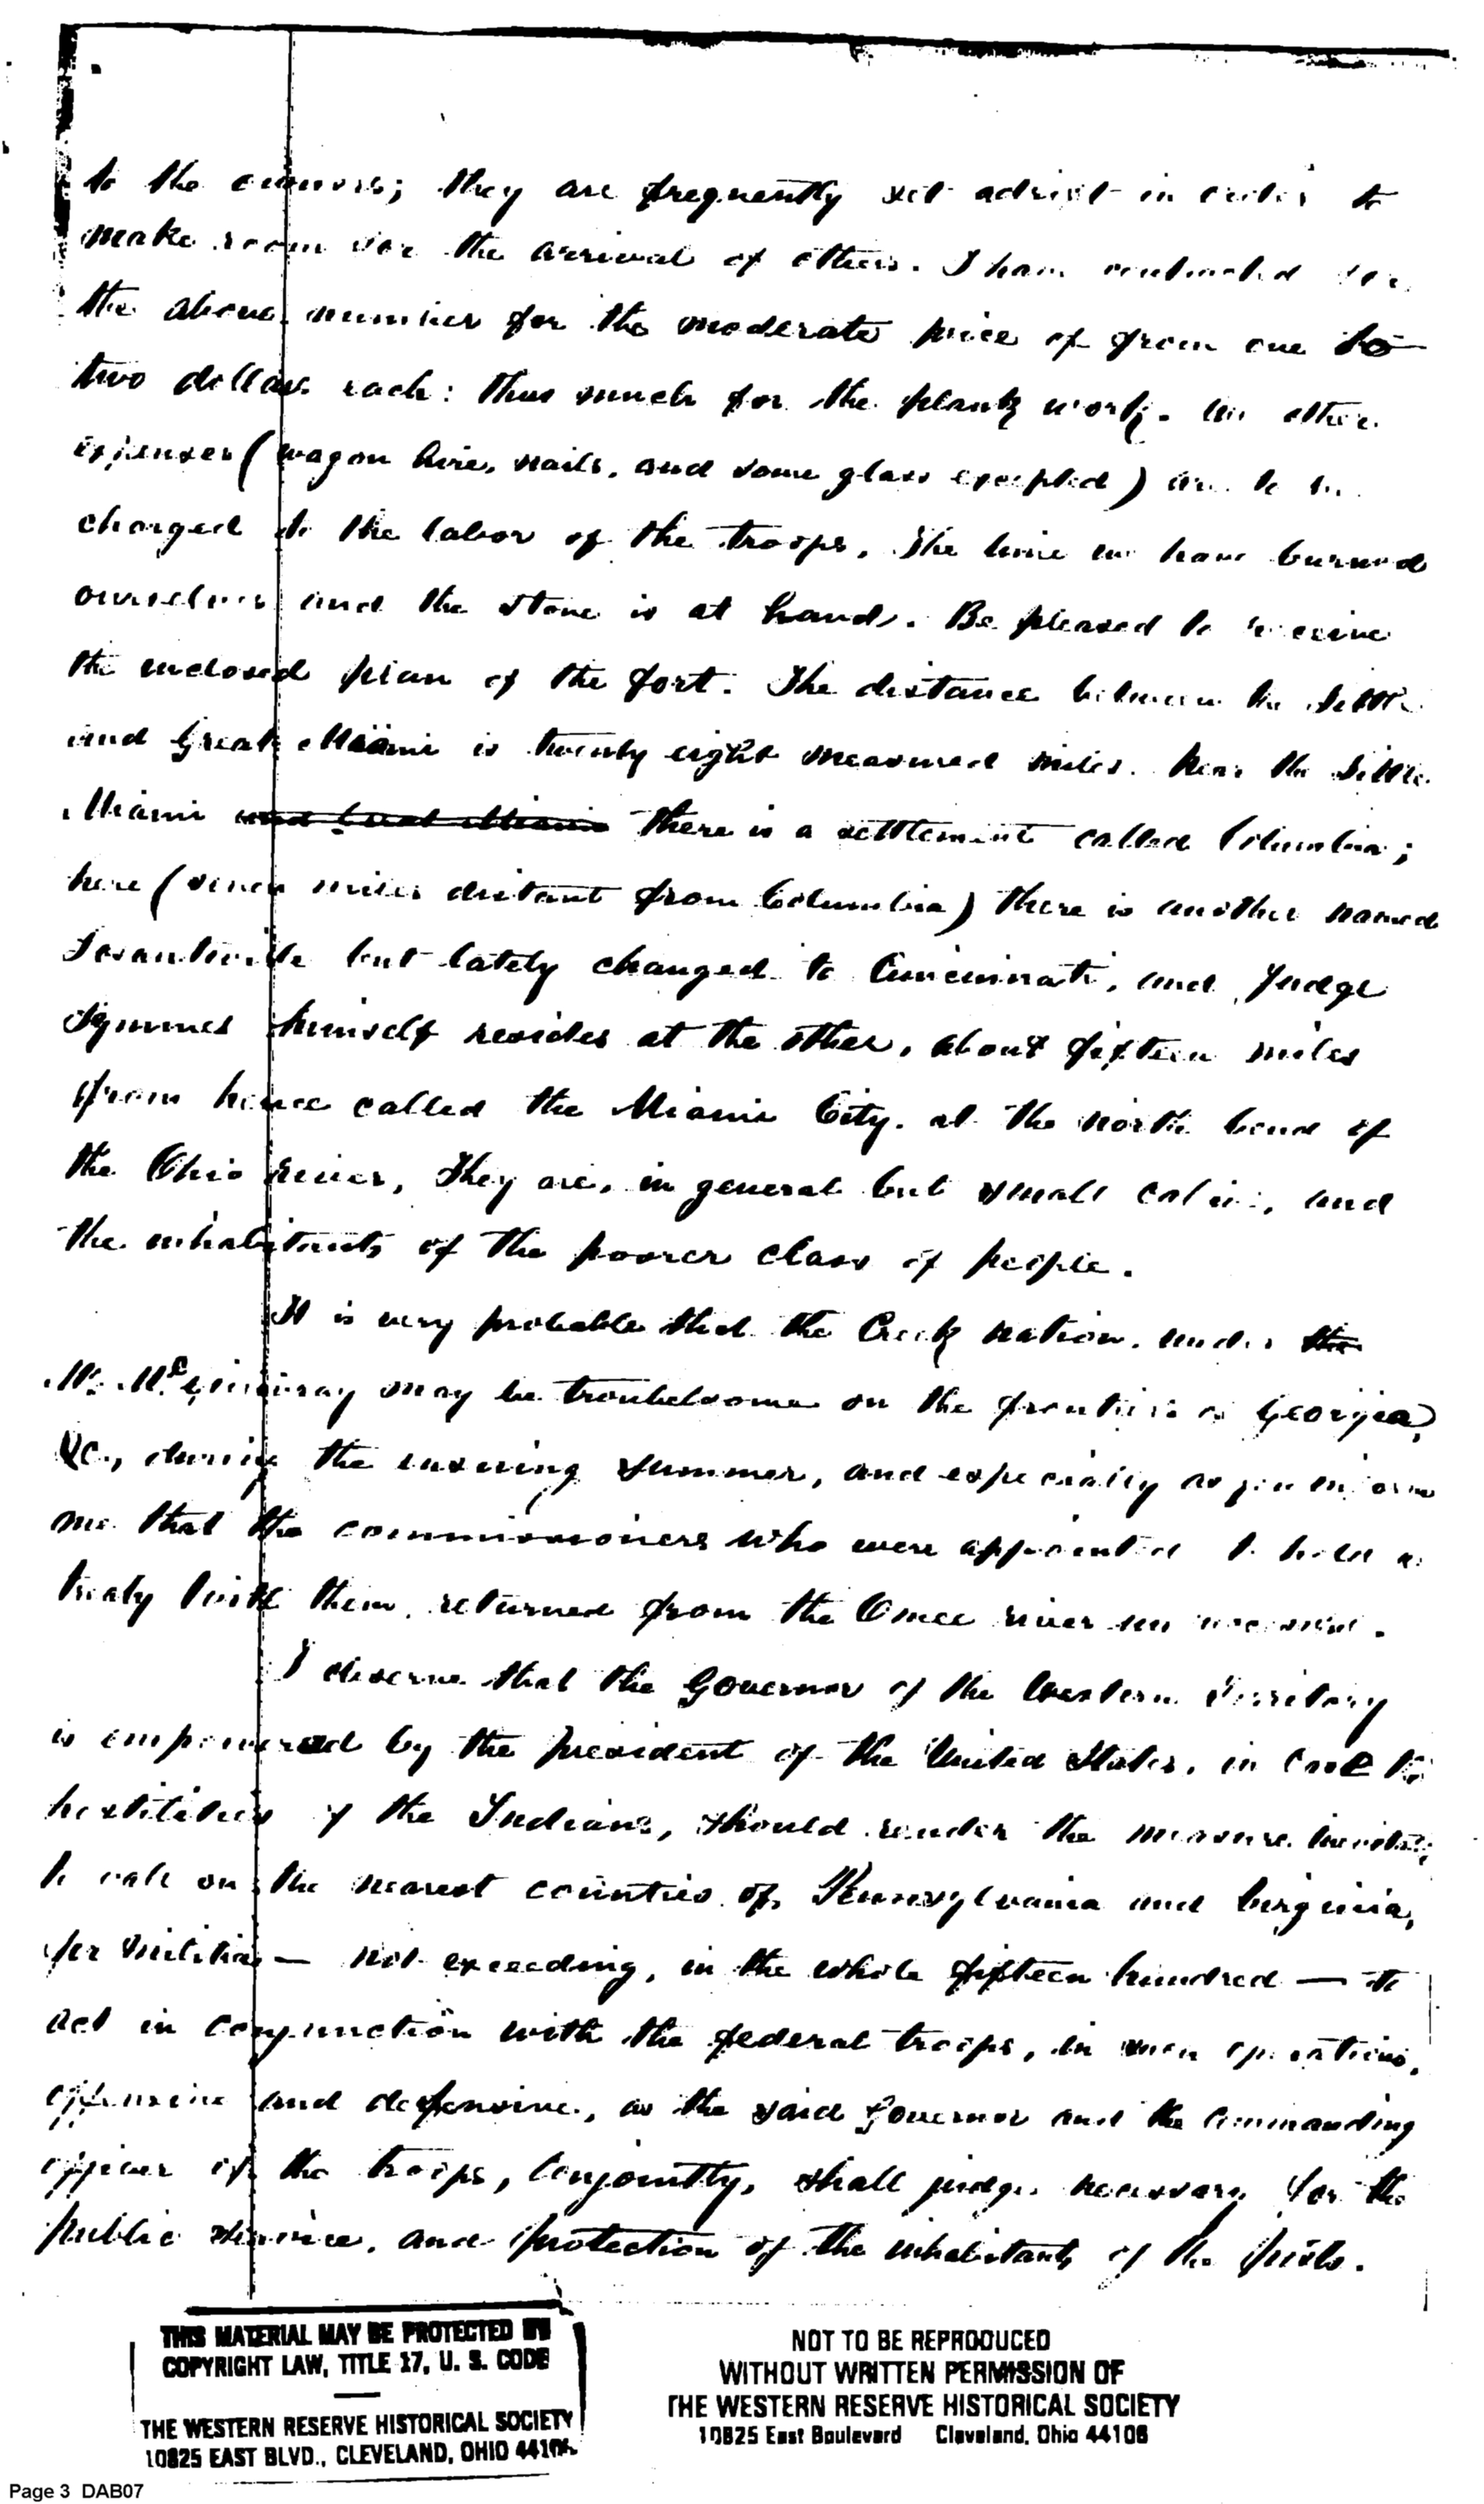 to the owners; they are frequently set adrift in order to
make room for the arrival of others. I have contracted for
the above number for the moderate price of from one to
two dollars each: thus much for the plank work. All other
expenses (wagon hire, nails, and some glass excepted) are to be
charged to the labor of the troops. The lime we have burned
ourselves and the stone is at hand. Be pleased to receive
the enclosed plan of the fort. The distance between the Little
and Great Miami is twenty eight measured miles. Near the Little
Miami and Great Miami there is a settlement called Columbia;
here (seven miles distant from Columbia) there is another named
Losantiville but lately changed to Cincinnati, and Judge
Symmes himself resides at the other, about fifteen miles
from hence called the Miami City. at the north bend of
the Ohio river, They are, in general but small cabins, and
the inhabitants of the poorer class of people.
It is very probable that the Creek nation, under the
Mr. McGillivray may be troubelsome on the frontiers of Georgia,
&c., during the ensuing summer, and especially as you inform
me that the commissioners who were appointed to hold a
treaty with them, returned from the Oconee river
I observe that the Governor of the Western Territory
is empowered by the president of the United States, in case the
hostilities of the Indians, should render the measure
to call on the nearest counties of Pennsylvania and Virginia,
for militia — not exceeding, in the whole fifteen hundred — to
act in conjunction with the federal troops, in such operations,
offensive and defensive, as the said Governor and the commanding
officer of the troops, conjointly, shall judge necessary for the
public service, and protection of the inhabitants of the posts.
THIS MATERIAL MAY BE PROTECTED BY
COPYRIGHT LAW, TITLE 17, U. S. CODE
THE WESTERN RESERVE HISTORICAL SOCIETY
10825 EAST BLVD., CLEVELAND, OHIO 44106
NOT TO BE REPRODUCED
WITHOUT WRITTEN PERMISSION OF
THE WESTERN RESERVE HISTORICAL SOCIETY
10825 East Boulevard Cleveland, Ohio 44106
Page 3 DAB07